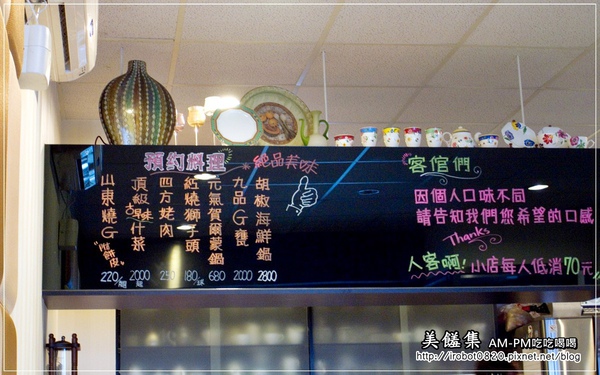 預約料理
絕品美味
胡椒海鮮鍋 2800
九品G甕 2000
元氣賀爾蒙鍋 680
紅燒獅子頭 180/球
四方烤肉 250
頂級古早味什菜 2000
山東燒G 220/
客倌們
因個人口味不同
請告知我們您希望的口感
Thanks
人客啊! 小店每人低消70元
美饈集 AM-PM吃吃喝喝
http://irobot0820.pixnet.net/blog